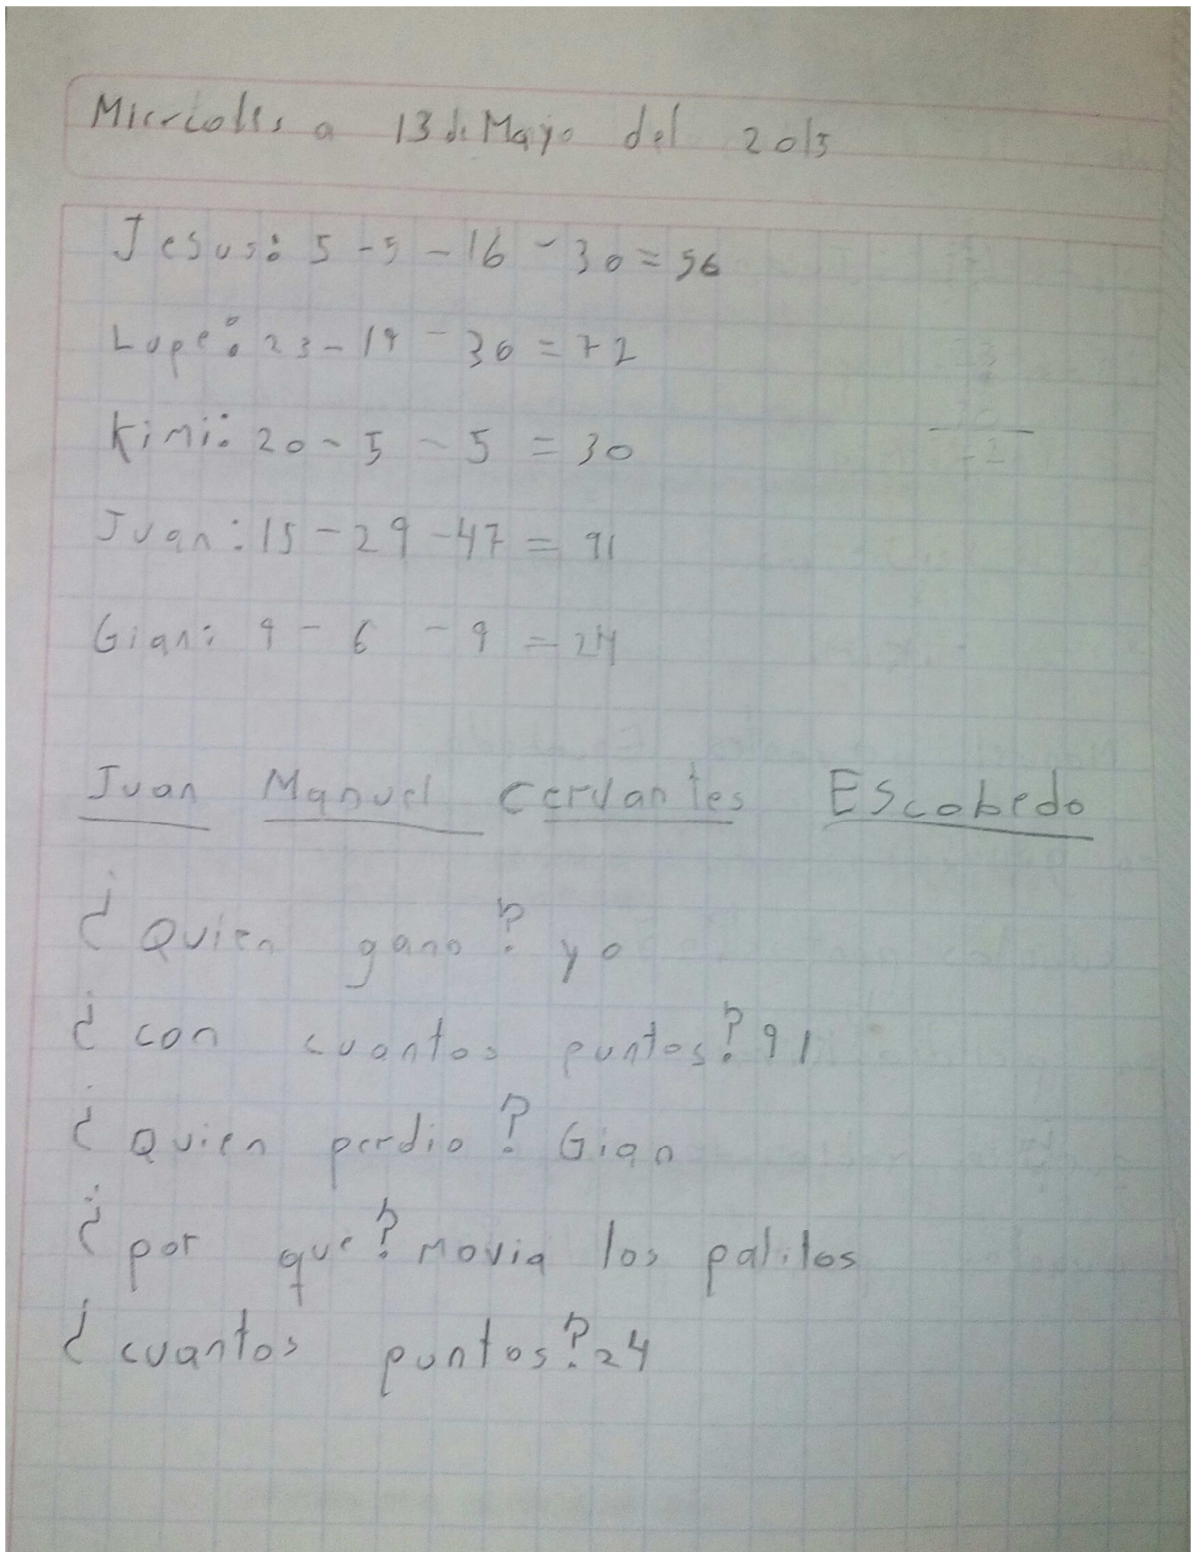 Miercoles a 13 de Mayo del 2015
Jesus: 5 - 5 - 16 - 30 = 56
Lupe: 23 - 19 - 30 = 72
Kimi: 20 - 5 - 5 = 30
Juan: 15 - 29 - 47 = 91
Gian: 9 - 6 - 9 = 24
Juan Manuel Cervantes Escobedo
¿Quien gano? yo
¿con cuantos puntos? 91
¿Quien perdio? Gian
¿por que? Movia los palitos
¿cuantos puntos? 24